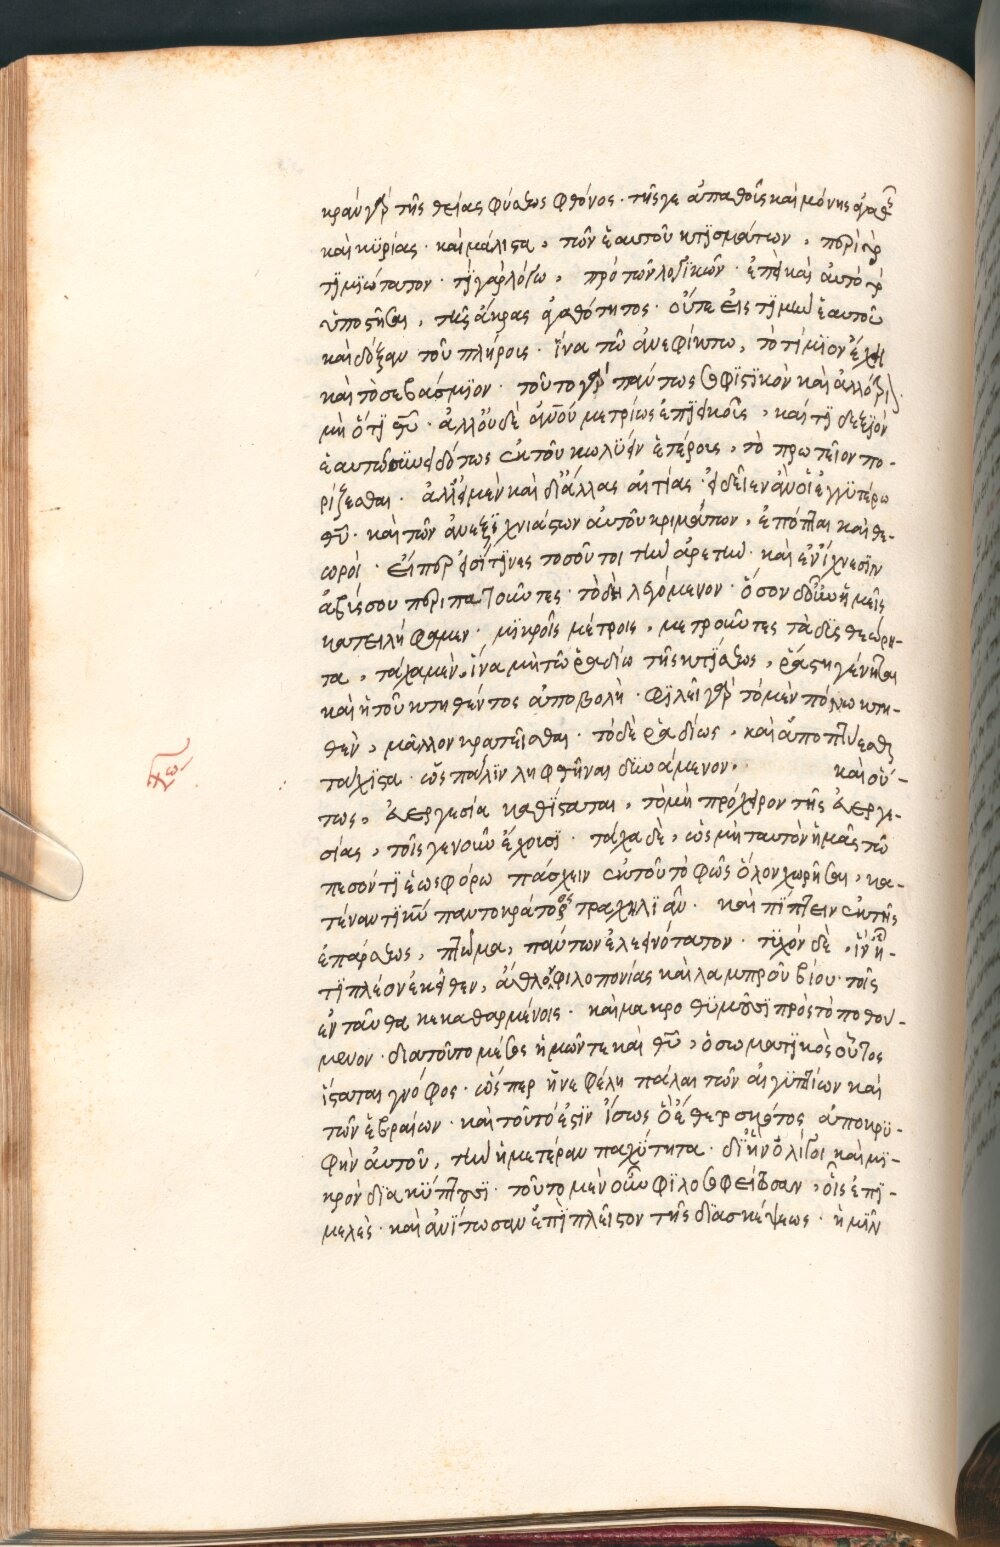 κρὰν γὰρ τῆς θείας φύσεως φθόνος · τῆς γε ἀπαθοῦς καὶ μόνης ἀγαθῆς
καὶ κϋρίας · καὶ μάλιστα, τῶν ἑαυτοῦ κτϊσμάτων, περὶ τὸ
τϊμϊώτατον · τί γὰρ λόγω, πρὸ τῶν λογϊκῶν · ἐπεὶ καὶ αὐτὸ τὸ
ὑποστῆναι, τῆς ἄκρας ἀγαθότητος · οὔτε εἰς τϊμὴν ἑαυτοῦ
καὶ δόξαν τοῦ πλήρους · ἵνα τῶ ἀνεφίκτω, τὸ τίμϊον ἔχει
καὶ τὸ σεβάσμϊον · τοῦτο γὰρ πάντως σοφϊστϊκὸν καὶ ἀλλότρι)
μὴ ὅτϊ θῦ · ἀλλ' οὐδὲ ἀνοῦ μετρίως ἐπϊεικοῦς, καί τϊ δεξϊὸν
ἑαυτῶ συνειδότως ἐκ τοῦ κωλϋειν ἑτέρους, τὸ πρωτεῖον πο-
ρίζεσθαι · ἀλλ' εἰ μὲν καὶ δϊ' ἄλλας αἰτίας · εἰδεῖεν ἂν οἱ ἐγγϋτέρω
θῦ · καὶ τῶν ἀνεξϊχνιάστων αὐτοῦ κριμάτων, ἐπόπται καὶ θε-
ωροὶ · εἴπερ εἰσί τϊνες τοσοῦτοι τὴν ἀρετὴν · καὶ ἐν ἴχνεσϊν
ἀβύσσου περιπατοῦντες · τὸ δὴ λεγόμενον · ὅσον δ' οὖν ἡμεῖς
κατειλήφαμεν · μϊκροῖς μέτροις, μετροῦντες τὰ δϋσθεώρη-
τα, τάχα μὲν, ἵνα μὴ τῶ ῥαδίω τῆς κτϊσεως, ῥάστη γένηται
καὶ ἡ τοῦ κτηθέντος ἀποβολὴ · φϊλεῖ γὰρ τὸ μὲν πόνω κτη-
θὲν, μᾶλλον κρατεῖσθαι · τὸ δὲ ῥαδίως, καὶ ἀποπτύεσθαι
τάχϊστα · ὡς πάλϊν ληφθῆναι δϋνάμενον · καὶ οὕ-
τως, εὐεργεσία καθίσταται, τὸ μὴ πρόχειρον τῆς εὐεργε-
σίας, τοῖς γε νοῦν ἔχουσϊ · τάχα δὲ, ὡς μὴ ταυτὸν ἡμᾶς τῶ
πεσόντϊ ἑωσφόρω πάσχειν ἐκ τοῦ τὸ φῶς ὅλον χωρῆσαι, κα-
τέναντϊ κῦ παντοκράτορος τραχηλϊᾶν · καὶ πίπτειν ἐκ τῆς
ἐπάρσεως, πτῶμα, πάντων ἐλεεινότατον · τϋχὸν δὲ, ἵν' ἦ-
τϊ πλέον ἐκεῖθεν, ἄθλον φιλοπονίας καὶ λαμπροῦ βίου τοῖς
ἐνταῦθα κεκαθαρμένοις · καὶ μακροθϋμοῦσϊ πρὸς τὸ ποθού-
μενον · διατοῦτο μέσος ἡμῶν τε καὶ θῦ, ὁ σωματϊκὸς οὗτος
ἵσταται γνόφος · ὥσπερ ἡ νεφέλη πάλαι τῶν αἰγϋπτίων καὶ
τῶν ἑβραίων · καὶ τοῦτό ἐστϊν ἴσως ὃ ἔθετο σκότος ἀποκρϋ-
φὴν αὐτοῦ, τὴν ἡμετέραν παχΰτητα · δϊ' ἣν ὀλίγοι καὶ μϊ-
κρὸν δϊακϋπτουσϊ · τοῦτο μὲν οὖν φϊλοσοφείτωσαν, οἷς ἐπϊ-
μελὲς · καὶ ἀνϊτωσαν ἐπϊ πλεῖστον τῆς δϊασκέψεως · ἡμῖν